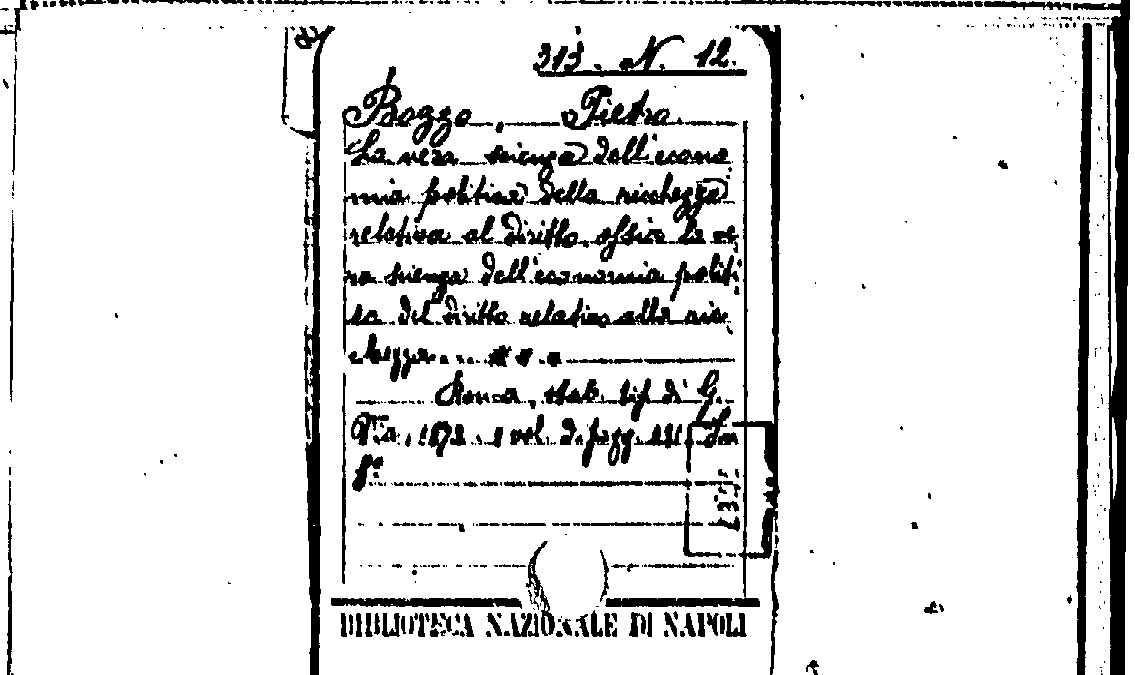 313. N. 12.
Bozzo, Pietro.
La vera scienza dell'econo
mia politica della ricchezza
relativa al diritto ossia la ve
ra scienza dell'economia politi
ca del diritto relativo alla ric
chezza...
stab. tip. di G.
Via, 1872. 1 vol. di pagg. In
8º
BIBLIOTECA NAZIONALE DI NAPOLI